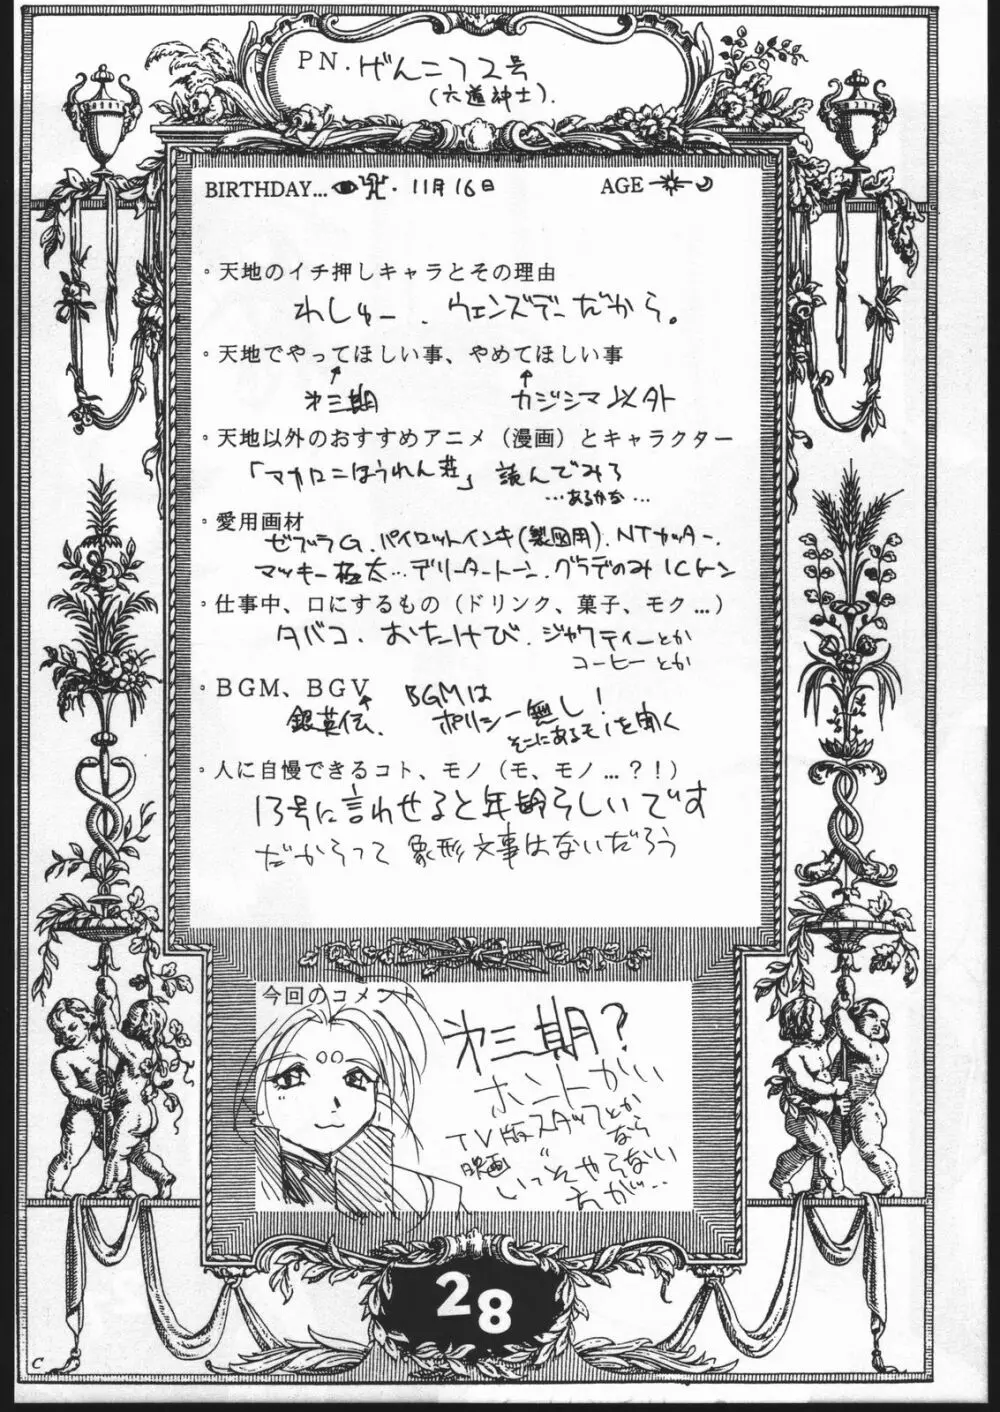 PN. げんこつ2号
(六道紳士).
BIRTHDAY... 11月16日
AGE
・天地のイチ押しキャラとその理由
わしゅー、ウェンズデーだから。
・天地でやってほしい事、やめてほしい事
↑ ↑
第三期 カジシマ以外
・天地以外のおすすめアニメ（漫画）とキャラクター
「マカロニほうれん荘」読んでみろ
…あるかな…
・愛用画材
ゼブラG、パイロットインキ(製図用)、NTカッター、
マッキー極太…デリータートーン、グラデのみICトーン
・仕事中、口にするもの（ドリンク、菓子、モク…）
タバコ、おたけび、ジャワティーとか
コーヒーとか
・BGM、BGV
銀英伝、
BGMは
ポリシー無し！
そこにあるモノを聞く
・人に自慢できるコト、モノ（モ、モノ…？！）
13号に言わせると年齢らしいです
だからって象形文字はないだろう
今回のコメント
第三期？
ホントかい
TV版スタッフとか
なら
映画
いっそやらない
28
C